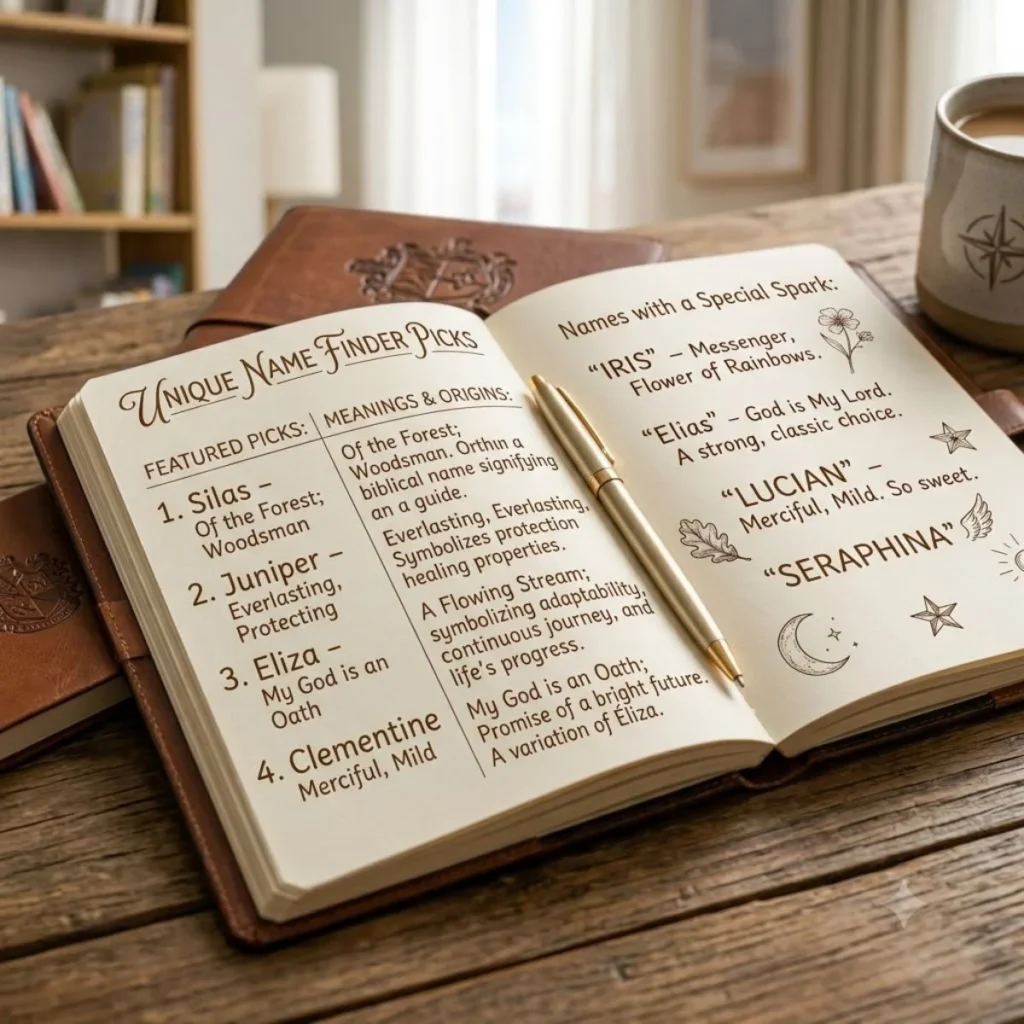 UNIQUE NAME FINDER PICKS
FEATURED PICKS:
1. Silas –
Of the Forest;
Woodsman
2. Juniper –
Everlasting,
Protecting
3. Eliza –
My God is an
Oath
4. Clementine
Merciful, Mild
MEANINGS & ORIGINS:
Of the Forest;
Woodsman. Orthın a
biblical name signifying
an a guide.
Everlasting, Everlasting,
Symbolizes protection
healing properties.
A Flowing Stream;
symbolizing adaptability,
continuous journey, and
life's progress.
My God is an Oath;
Promise of a bright future.
A variation of Éliza.
Names with a Special Spark:
"IRIS" – Messenger,
Flower of Rainbows.
"Elias" – God is My Lord.
A strong, classic choice.
"LUCIAN" –
Merciful, Mild. So sweet.
"SERAPHINA"